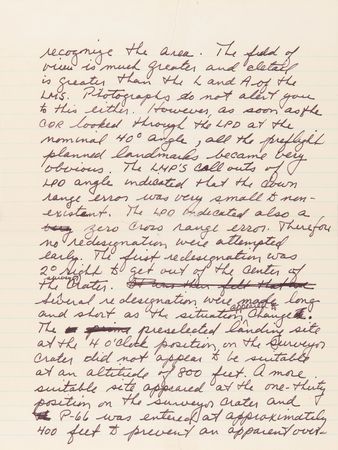 recogonize the area. The field of
view is much greater and detail
is greater than the L and A of the
LMS. Photographs do not alert you
to this either. However as soon as the
CDR looked through the LPD at the
nominal 40° angle, all the preflight
planned landmarks became very
obvious. The LMP'S call outs of
LPD angle indicated that the down
range error was very small to non-
existant. The LPD indicated also a
zero cross range error. Therefore
no redesignation were attempted
early. The first redesignation was
2° right to get out of the center of
the surveyor crater. It was then felt that
Several redesignation were made long
and short as the situation apparently Changed.
The preselected landing site
at the 4 o'clock position, on the Surveyor
crater did not appear to be suitable
at an altitude of 800 feet. A more
suitable site appeared at the one-thirty
position on the surveyor crater and
P-66 was entered at approximately
400 feet to prevent an apparent over-